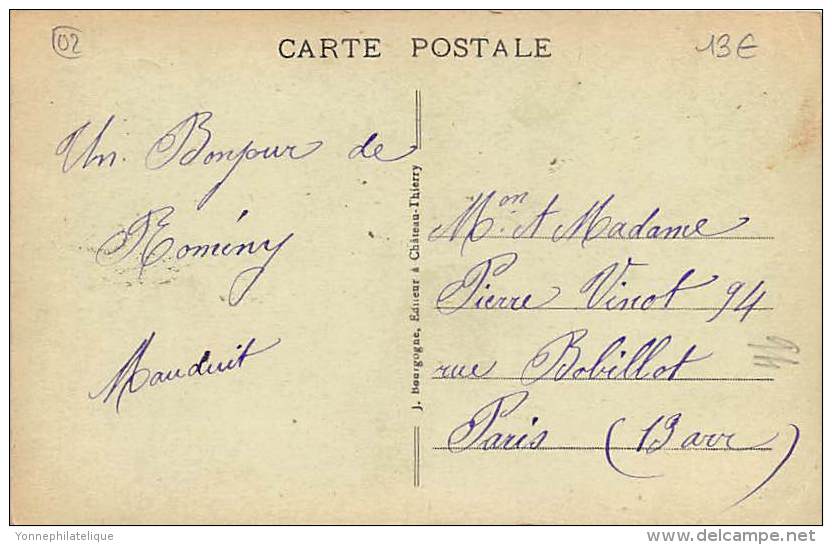 02
CARTE POSTALE
13€
Un. Bonjour de
Romény
Mauduit
J. Bourgogne, Editeur à Château-Thierry
Mon et Madame
Pierre Vinot 94
rue Bobillot
Paris (13 arr)
Yonnephilatelique
delcampe.net